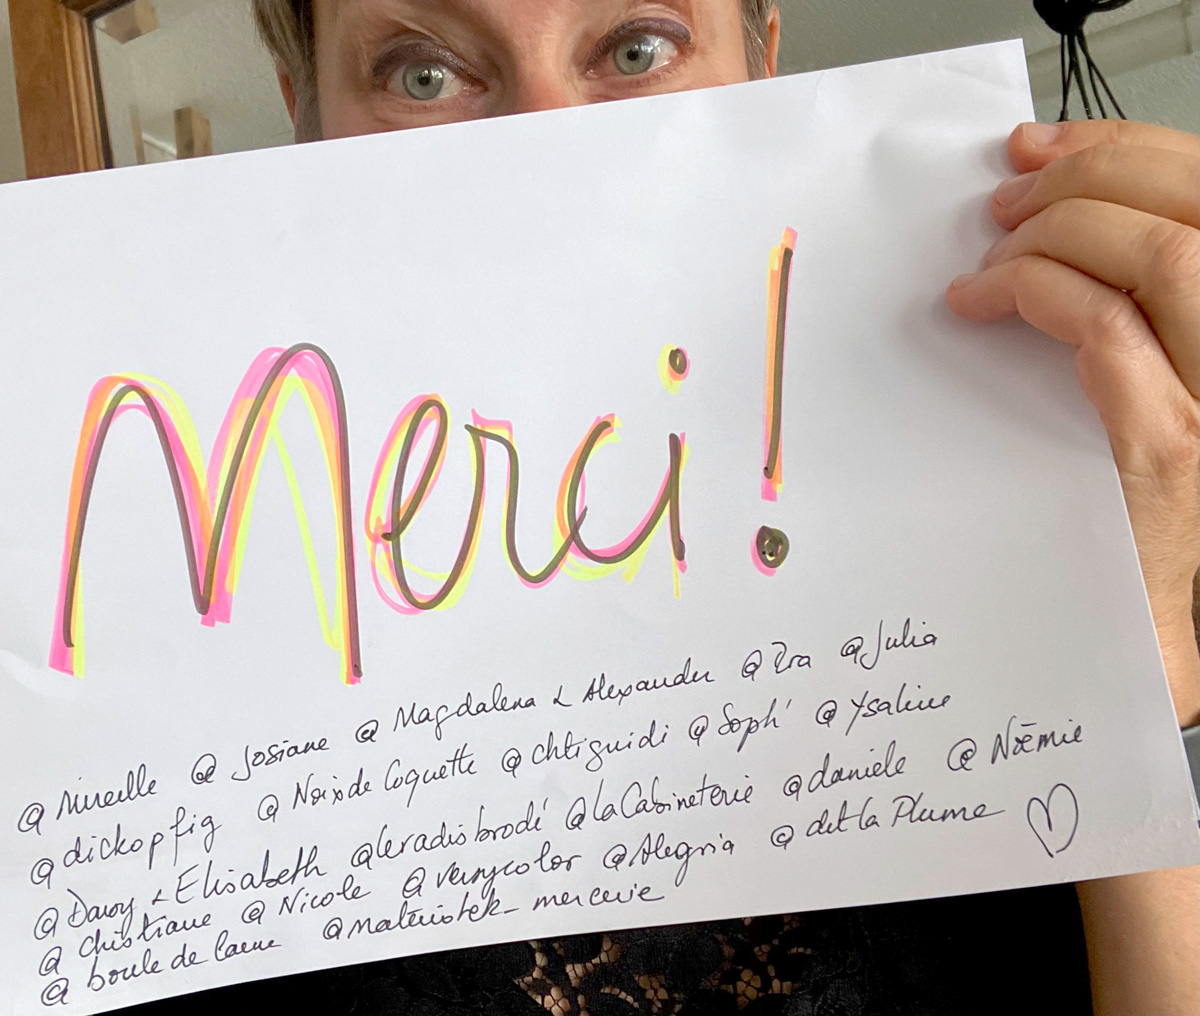 Merci !
@ Mireille @ Josiane @ Magdalena & Alexander @ Zra @ Julia
@ dickopfig @ Noix de Coquette @ chtiguidi @ Soph' @ Ysaline
@ Davy & Elisabeth @leradisbrodé @laCabineterie @daniele @ Noëmie
@ christiane @ Nicole @ verycolor @Alegria @ dit la Plume
@ boule de laine @materiotek_mercerie